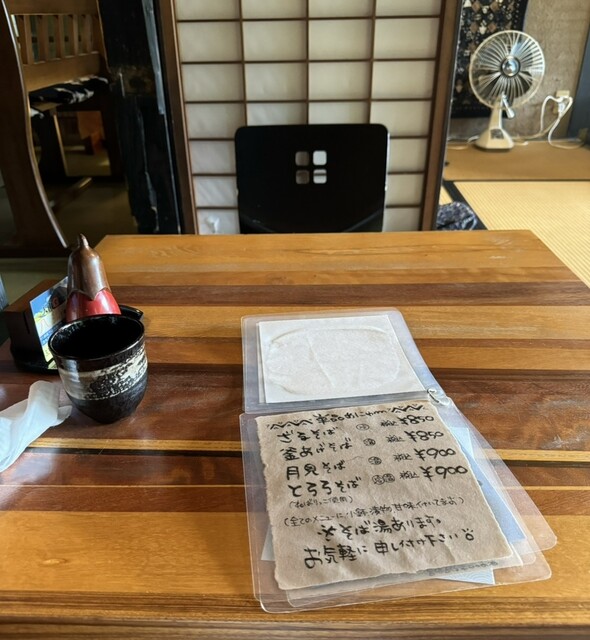 ざるそば ¥850
釜あげそば ¥850
月見そば ¥900
とろろそば ¥900
(全てのメニューに小鉢 漬物 甘味 付いてます)
そば湯あります。
お気軽に申し付け下さい